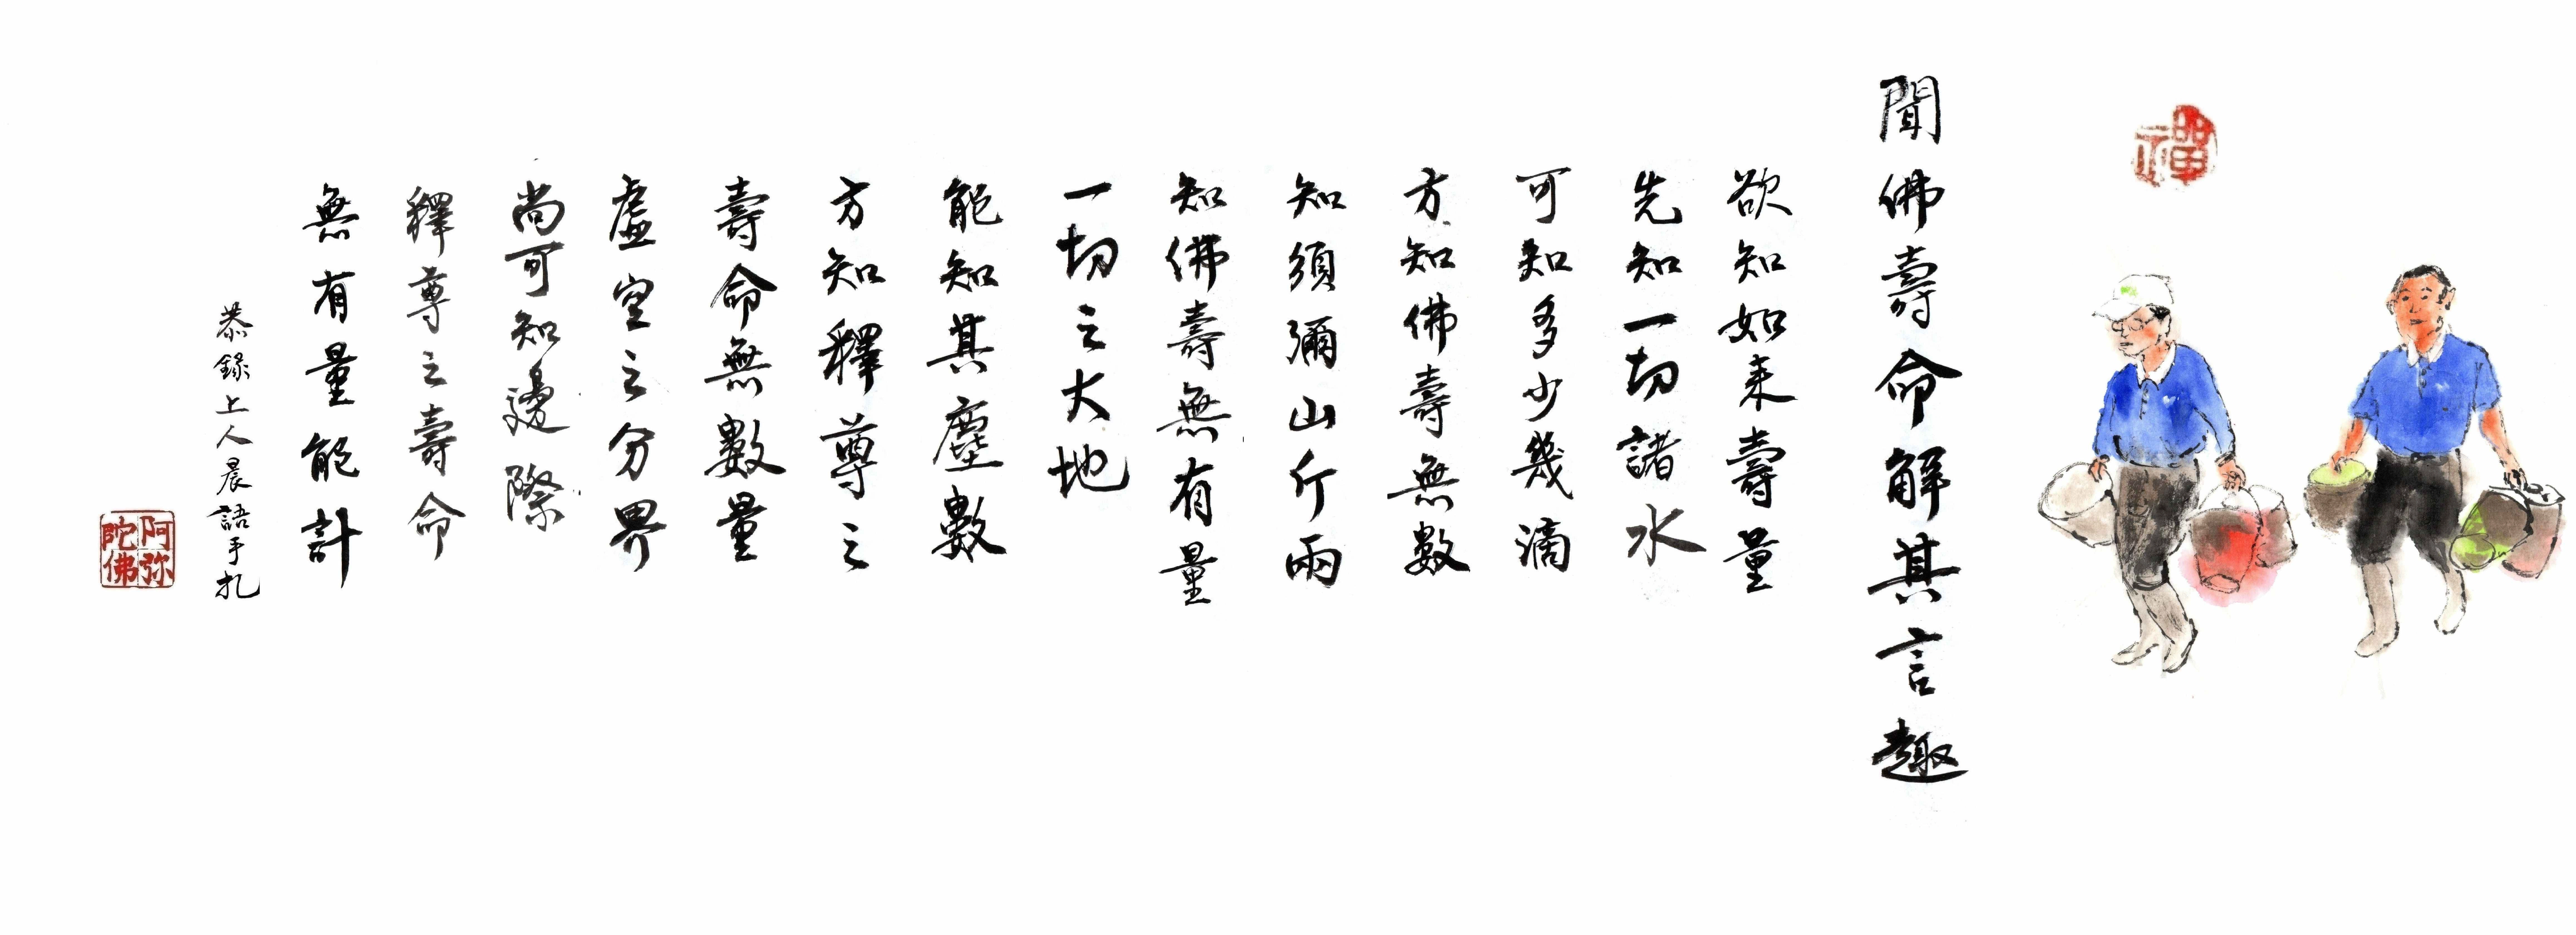 禪
聞佛壽命解其言趣
欲知如来壽量
先知一切諸水
可知多少幾滴
方知佛壽無數
知須彌山斤兩
知佛壽無有量
一切之大地
能知其塵數
方知釋尊之
壽命無數量
虛空之分界
尚可知邊際
釋尊之壽命
無有量能計
恭錄上人晨語手札
阿弥
陀佛